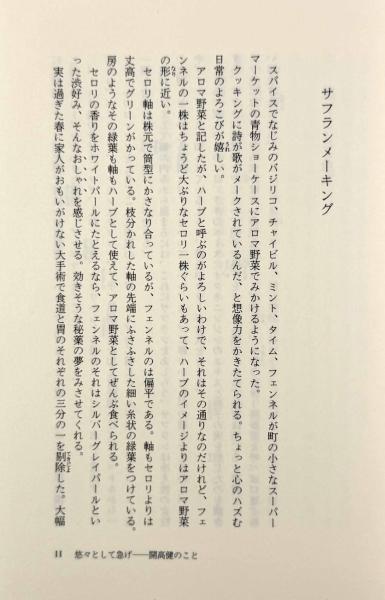 サフランメーキング
スパイスでなじみのバジリコ、チャイビル、ミント、タイム、フェンネルが町の小さなスーパー
マーケットの青物ショーケースにアロマ野菜でみかけるようになった。
クッキングに詩が歌がメークされているんだ、と想像力をかきたてられる。ちょっと心のハズむ
日常のよろこびが嬉しい。
アロマ野菜と記したが、ハーブと呼ぶのがよろしいわけで、それはその通りなのだけれど、フェ
ンネルの一株はちょうど大ぶりなセロリ一株ぐらいもあって、ハーブのイメージよりはアロマ野菜
の形に近い。
セロリ軸は株元で筒型にかさなり合っているが、フェンネルのは偏平である。軸もセロリよりは
丈高でグリーンがかっている。枝分かれした軸の先端にふさふさした細い糸状の緑葉をつけている。
房のようなその緑葉も軸もハーブとして使えて、アロマ野菜としてぜんぶ食べられる。
セロリの香りをホワイトパールにたとえるなら、フェンネルのそれはシルバーグレイパールとい
った渋好み、そんなおしゃれを感じさせる。効きそうな秘薬の夢をみさせてくれる。
実は過ぎた春に家人がおもいがけない大手術で食道と胃のそれぞれの三分の一を剔除した。大幅
11 悠々として急げ——開高健のこと